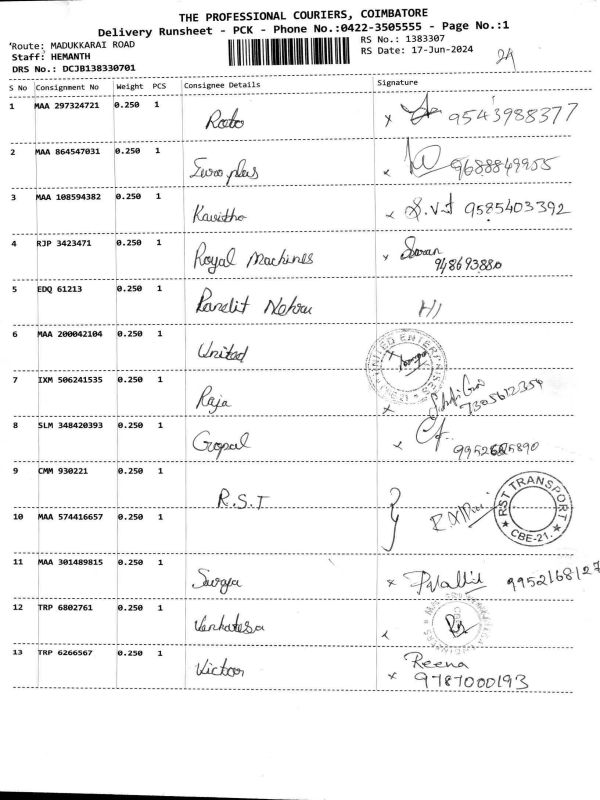 THE PROFESSIONAL COURIERS, COIMBATORE
Delivery Runsheet - PCK - Phone No.:0422-3505555 - Page No.:1
Route: MADUKKARAI ROAD RS No.: 1383307
Staff: HEMANTH RS Date: 17-Jun-2024
DRS No.: DCJB138330701
S No Consignment No Weight PCS Consignee Details Signature
1 MAA 297324721 0.250 1 x 9543988377
2 MAA 864547031 0.250 1 x 9688849955
3 MAA 108594382 0.250 1 Kavitha x S.V.J 9585403392
4 RJP 3423471 0.250 1 Royal Machines x Saran
948693880
5 EDQ 61213 0.250 1 Pandit Nehru
6 MAA 200042104 0.250 1 United UNITED ENTERPRISES
7 IXM 506241535 0.250 1 Raja x 7305612354
8 SLM 348420393 0.250 1 Gopal x
9 CMM 930221 0.250 1 R.S.T RST TRANSPORT
CBE-21.
10 MAA 574416657 0.250 1
11 MAA 301489815 0.250 1 Surya x 9952168127
12 TRP 6802761 0.250 1 Venkatesa x
13 TRP 6266567 0.250 1 Victor x Reena
9787000193